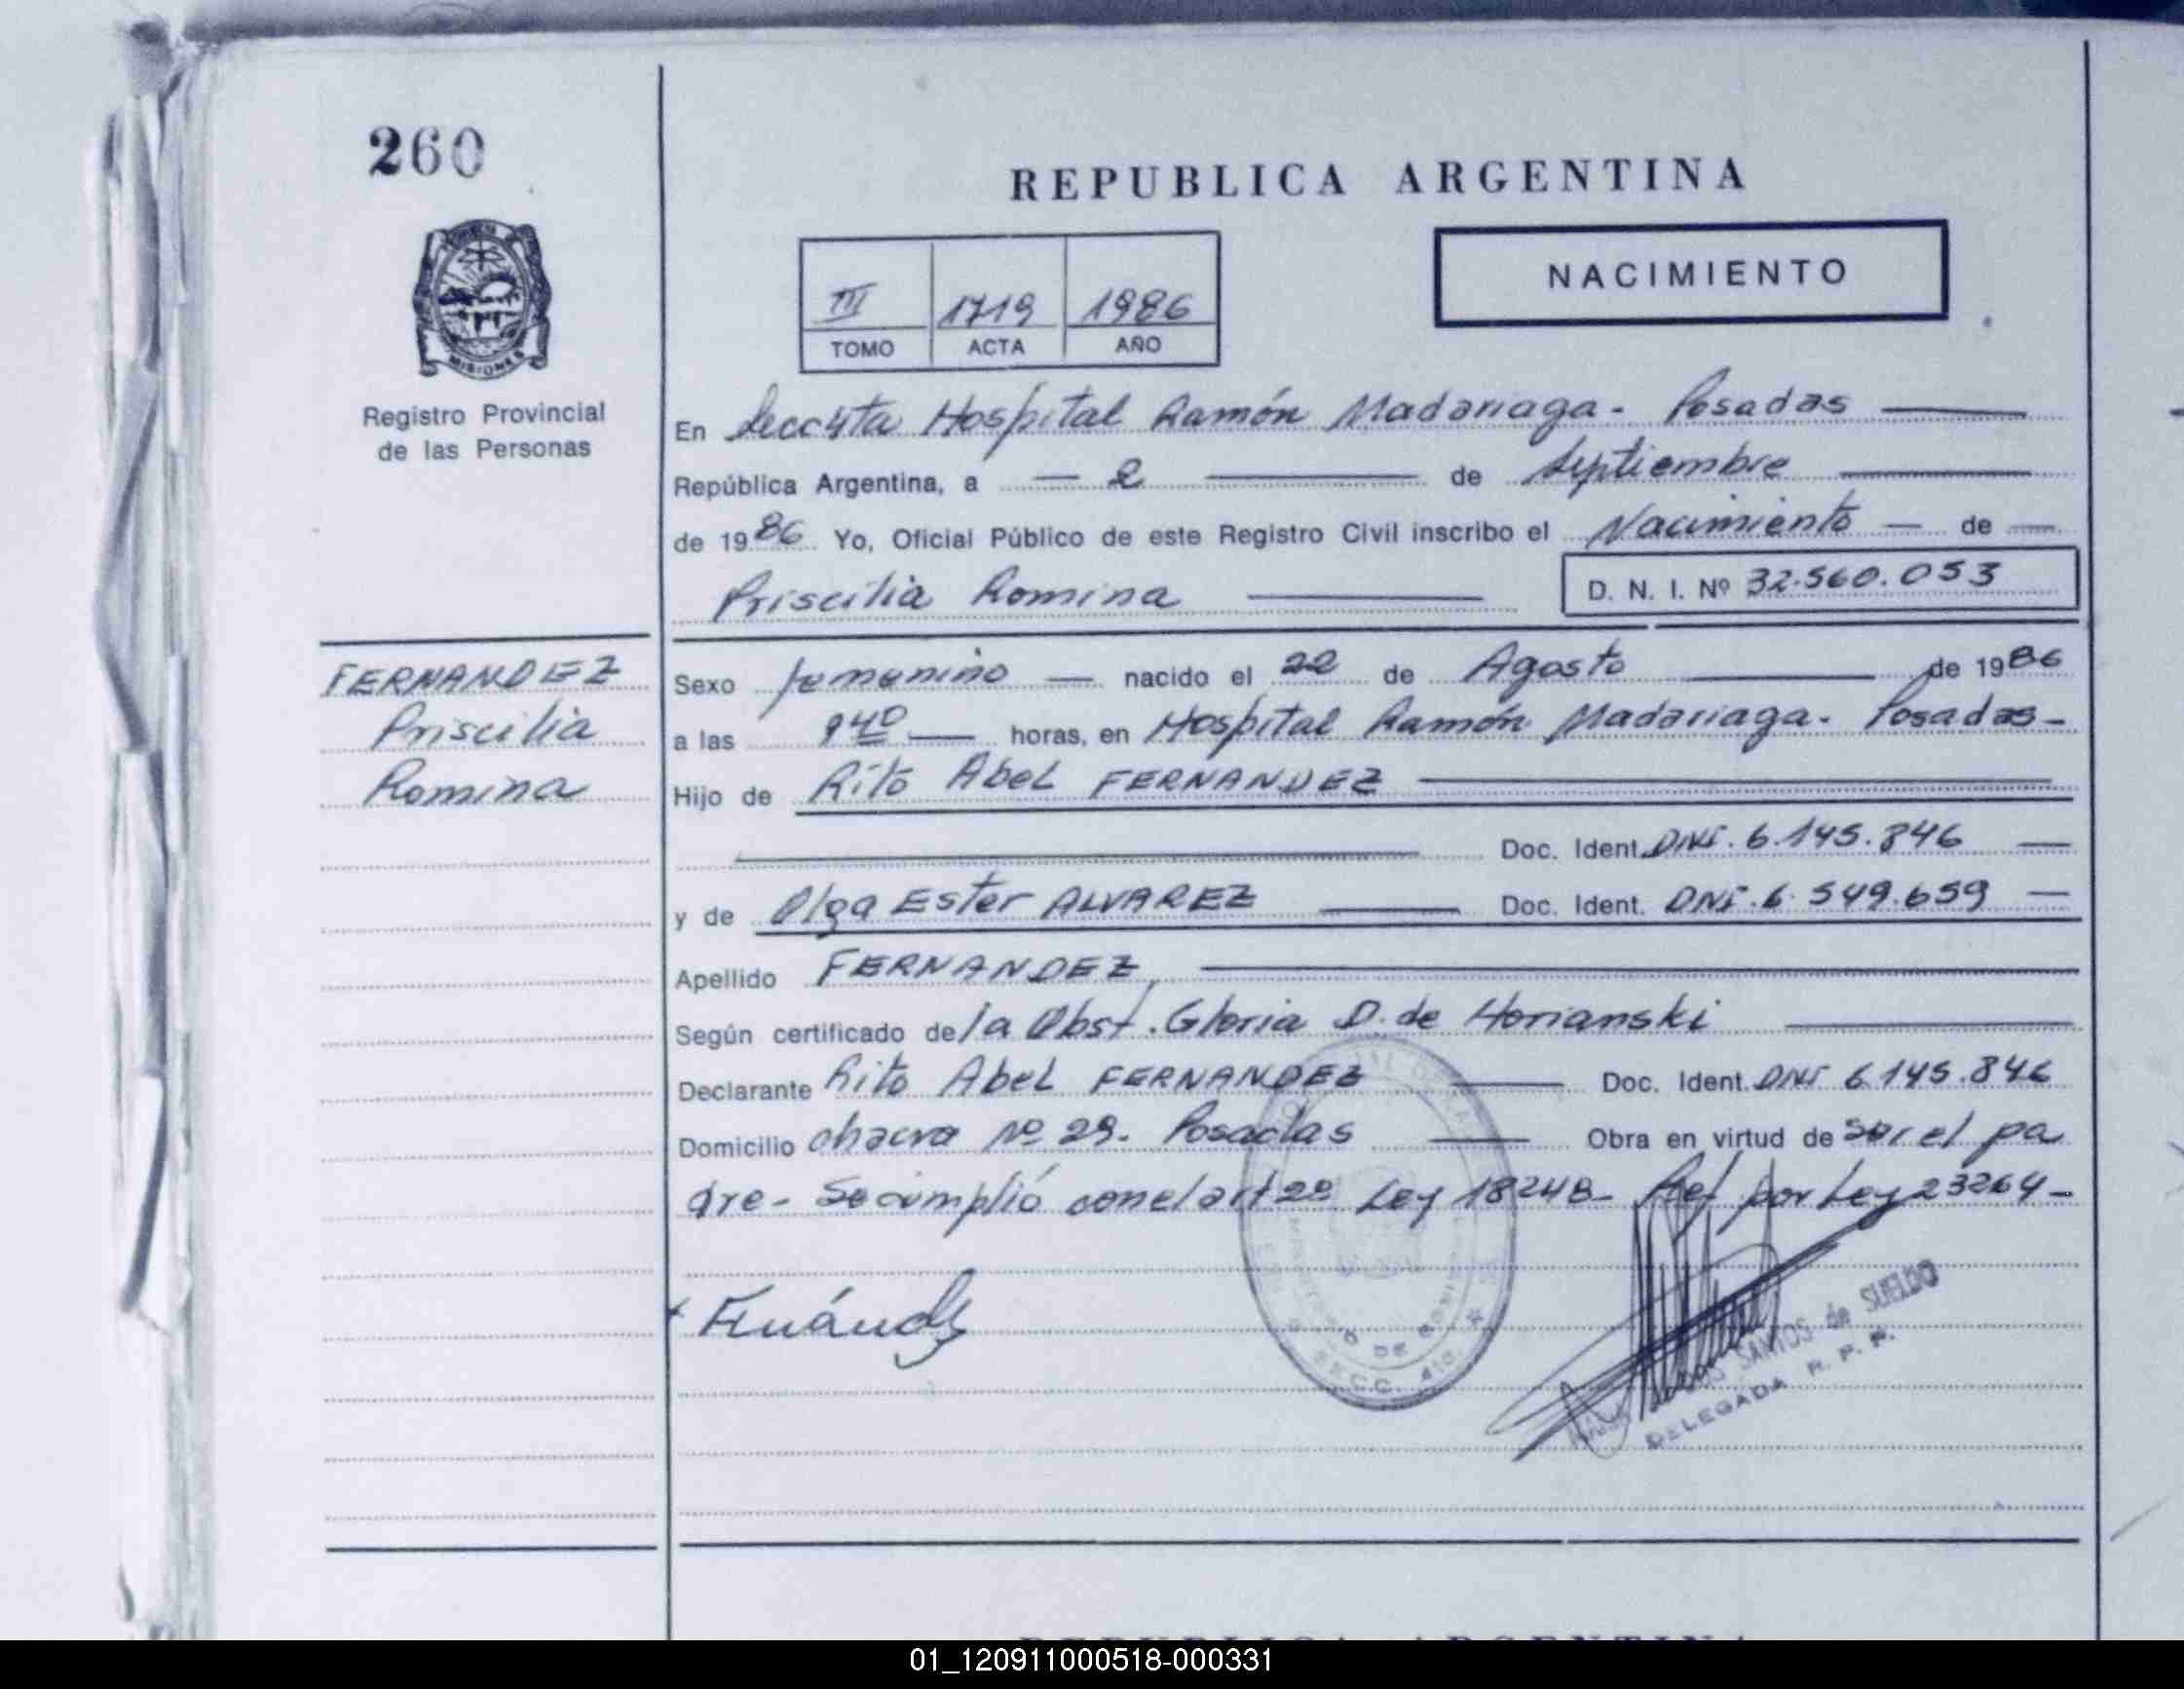 260
MISIONES
Registro Provincial
de las Personas
REPUBLICA ARGENTINA
III 1719 1986
TOMO ACTA AÑO
NACIMIENTO
En Secc 4ta Hospital Ramón Madariaga - Posadas
República Argentina, a 2 de Septiembre
de 1986 Yo, Oficial Público de este Registro Civil inscribo el Nacimiento de
Priscilia Romina D. N. I. Nº 32.560.053
FERNANDEZ
Priscilia
Romina
Sexo femenino nacido el 22 de Agosto de 1986
a las 9 40 horas, en Hospital Ramón Madariaga - Posadas -
Hijo de Rito Abel FERNANDEZ
Doc. Ident. DNI. 6.145.846
y de Olga Ester ALVAREZ Doc. Ident. DNI. 6.549.659
Apellido FERNANDEZ
Según certificado de la Obst. Gloria D. de Horianski
Declarante Rito Abel FERNANDEZ Doc. Ident. DNI 6.145.846
Domicilio chacra Nº 29. Posadas Obra en virtud de ser el pa
dre - Se cumplió con el art 2º Ley 18248 - Ref por Ley 23264 -
SANTOS de SUELDO
DELEGADA R. P. P.
SECC. 4ta.
REPUBLICA ARGENTINA
01_120911000518-000331